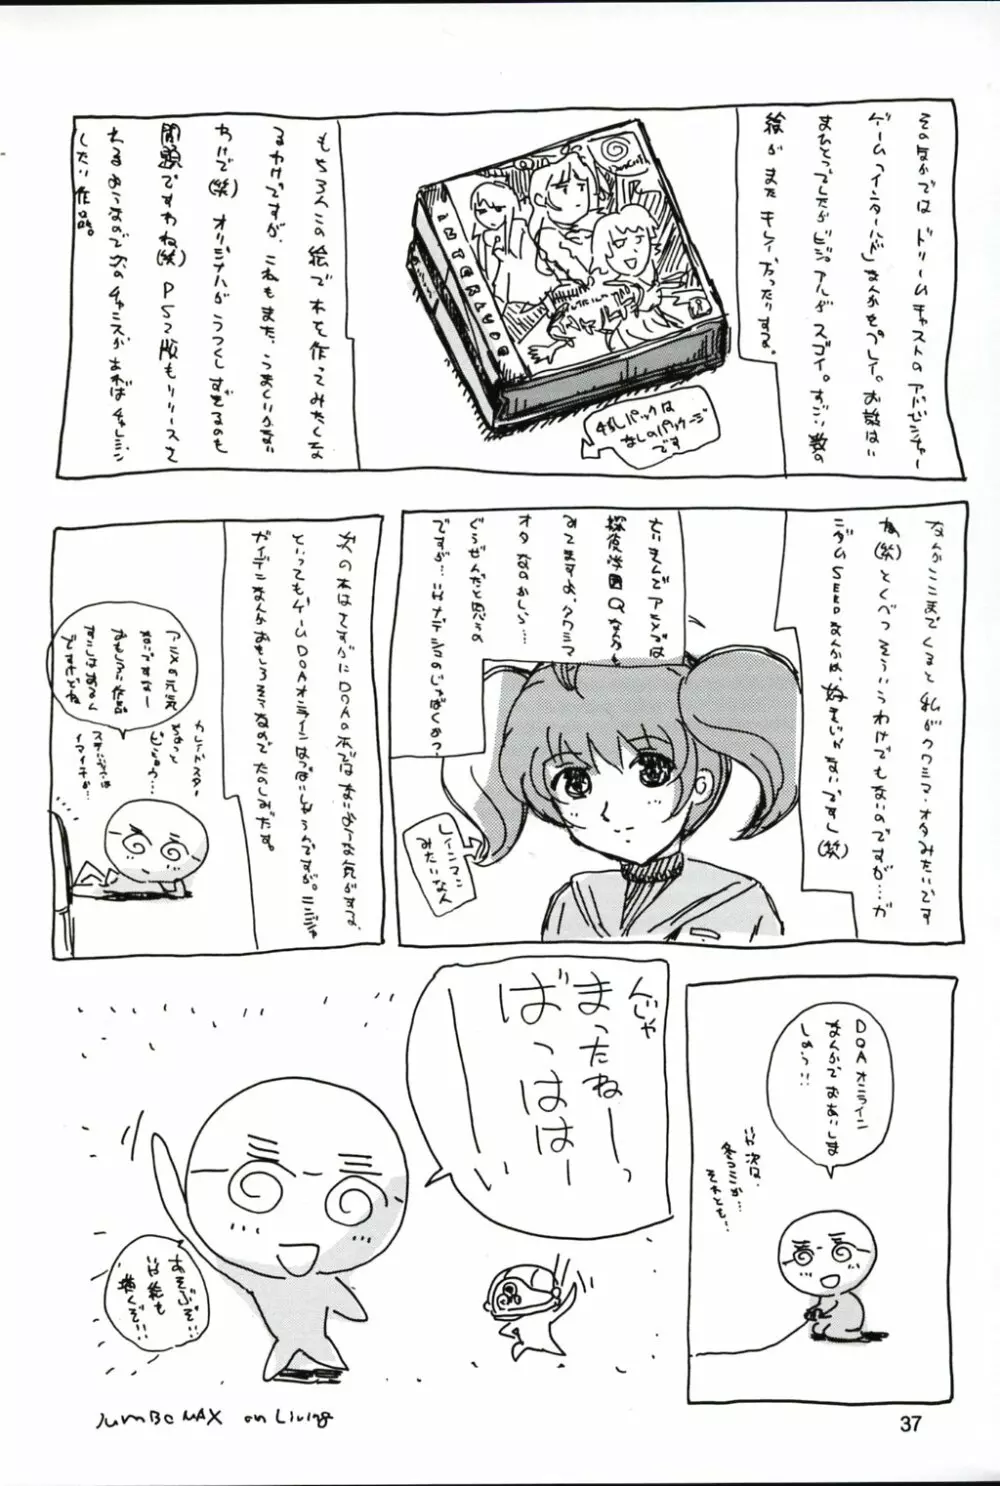 そのなかでは ドリームキャストの アドベンチャー
ゲーム「インタールード」なんかをプレイ。お話はい
まひとつでしたがビジュアルがスゴイ。すごい数の
絵が またキレイだったりする。
INTERLUDE
初回パックは
なしのパッケージ
です
もちろんこの絵で本を作ってみたくな
るわけですが、これもまた、うまくいかない
わけで(笑) オリジナルがうつくしすぎるのも
問題ですわね(笑) PS2版もリリースさ
れるようなので次のチャンスがあればチャレンジ
したい作品。
なんかここまでしると私がクワシマ・オタみたいです
ね(笑)とくべつそういうわけでもないのですが…ガ
ンダムSEEDなんかは、好きじゃないですし(笑)
探偵学園Qなんかも
みてますよ、クワシマ
オタなのかしら…
ぐうぜんだと思うの
ですが…
レインマン
みたいな人
次の本はたすがにDOAの本ではないような気がする、
といってもゲームDOAオンラインはっぱいしゃらんですが。ニンジャ
ガイデンなんかおもしろそうなのでたのしみだす。
アニメの元気
ないですなー
おもしろい作品
すこしはあるん
ですけどね
カレイドスター
ちょっと
ビミョウ…
ステルヴィアは
イマイチか…
DOAオンライン
なんかでおあいしま
しょう!!
次は、
冬コミか…
それとも…
んじゃ
まったねーっ
ばっはは
ーい
あそぶぞ!!
絵も
描くぞ!!
JumBo MAX on Living
37